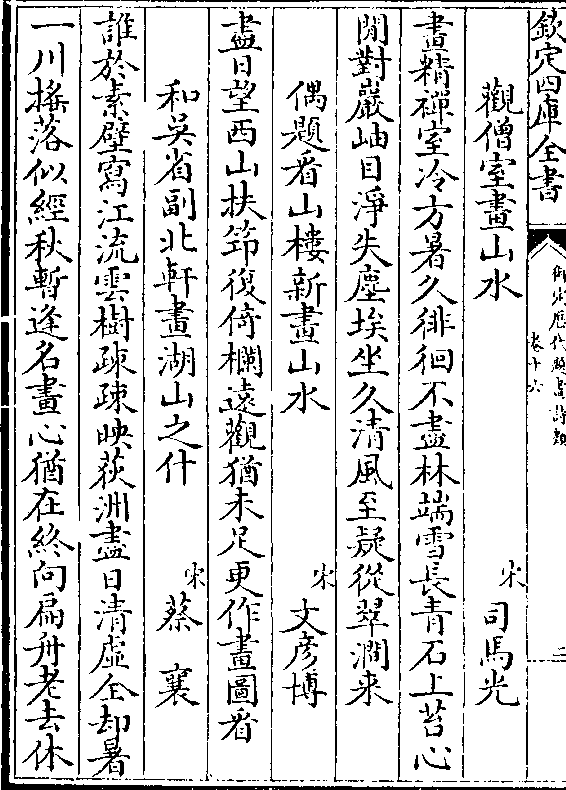 欽定四庫全書
御定歷代題畫詩類 卷十六
二
觀僧室畫山水
宋 司馬光
畫精禪室冷方暑久徘徊不盡林端雪長青石上苔心
閒對巖岫目淨失塵埃坐久清風至疑從翠澗来
偶題看山樓新畫山水
宋 文彦博
盡日望西山扶筇復倚欄遠觀猶未足更作畫圖看
和吳省副北軒畫湖山之什
宋 蔡襄
誰於素壁寫江流雲樹疎疎映荻洲盡日清虛全却暑
一川搖落似經秋暫逢名畫心猶在終向扁舟老去休